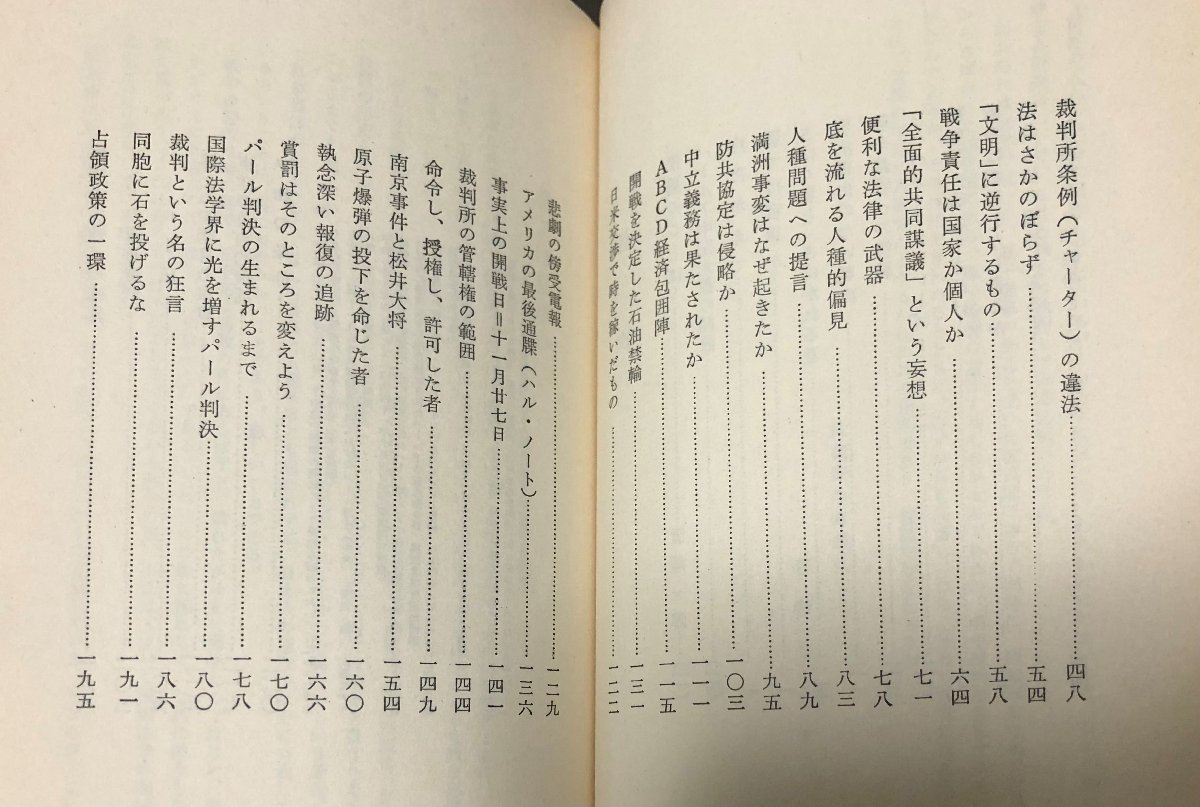 裁判所条例(チャーター)の違法……四八
法はさかのぼらず……五四
「文明」に逆行するもの……五八
戦争責任は国家か個人か……六四
「全面的共同謀議」という妄想……七一
便利な法律の武器……七八
底を流れる人種的偏見……八三
人種問題への提言……八九
満洲事変はなぜ起きたか……九五
防共協定は侵略か……一〇三
中立義務は果たされたか……一一一
ABCD経済包囲陣……一一五
開戦を決定した石油禁輸……
日米交渉で時を稼いだもの……
悲劇の傍受電報……一二九
アメリカの最後通牒(ハル・ノート)……一三六
事実上の開戦日=十一月廿七日……一四一
裁判所の管轄権の範囲……一四四
命令し、授権し、許可した者……一四九
南京事件と松井大将……一五四
原子爆弾の投下を命じた者……一六〇
執念深い報復の追跡……一六六
賞罰はそのところを変えよう……一七〇
パール判決の生まれるまで……一七八
国際法学界に光を増すパール判決……一八〇
裁判という名の狂言……一八六
同胞に石を投げるな……一九一
占領政策の一環……一九五